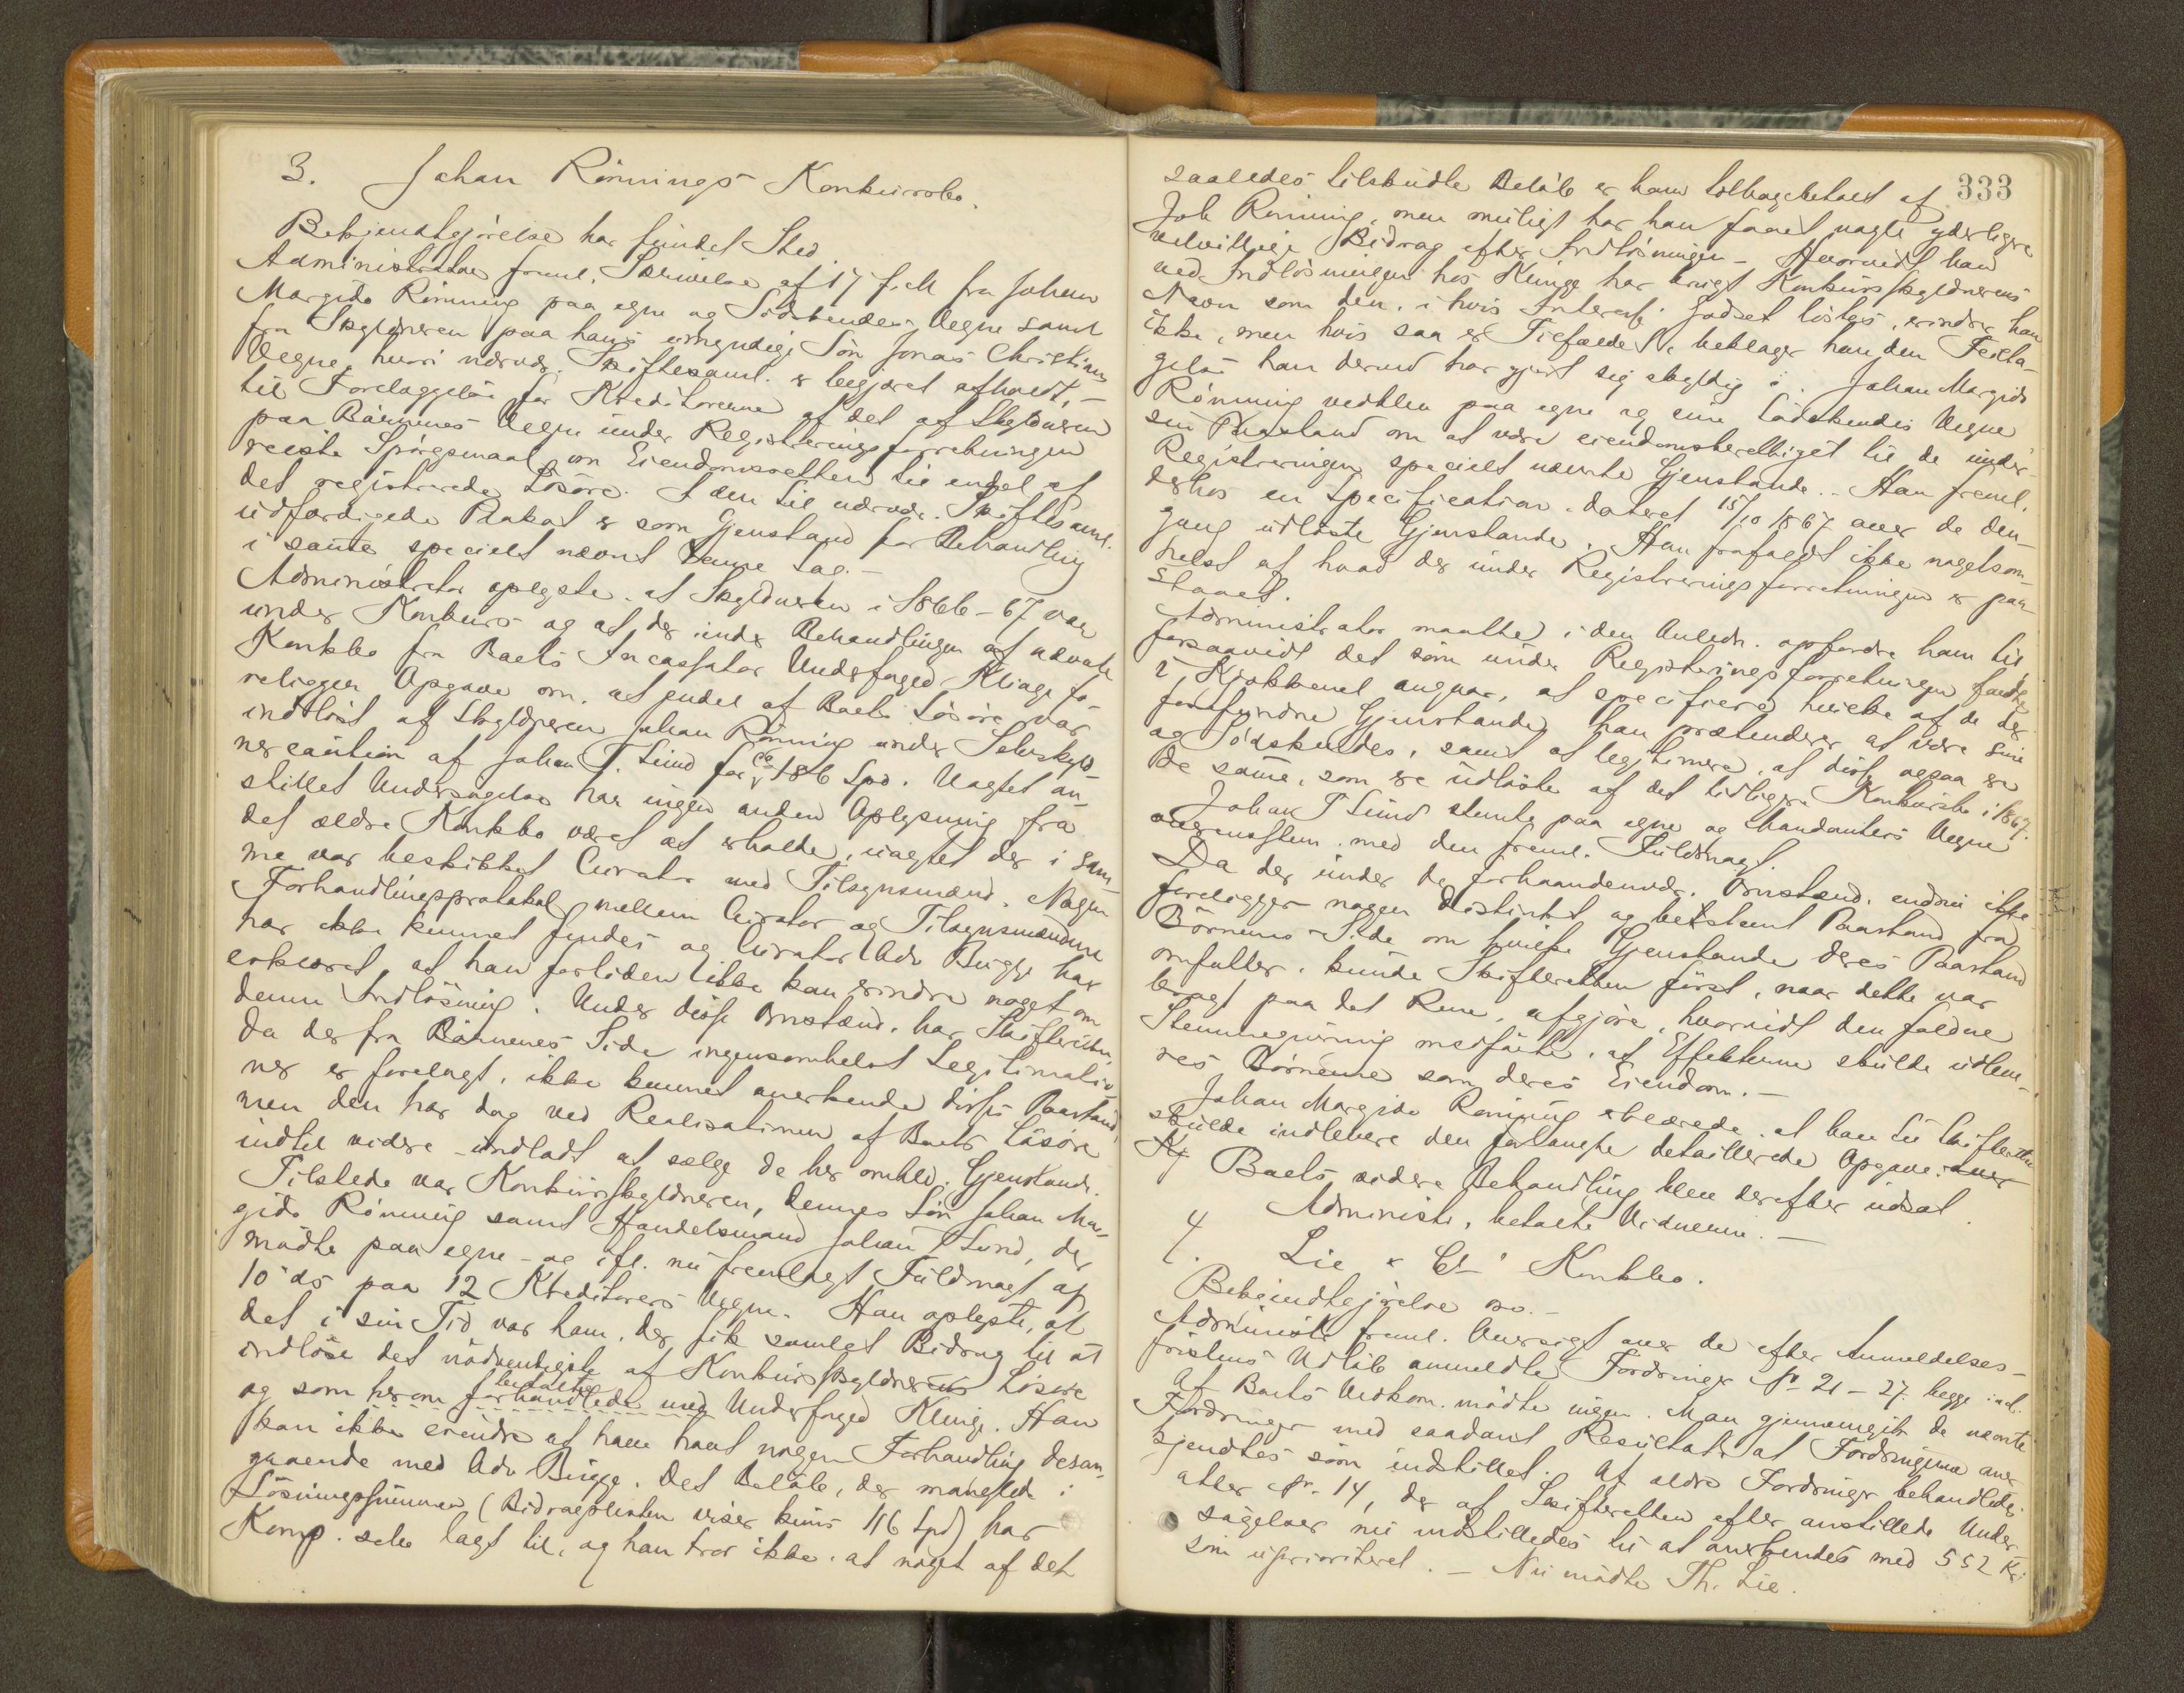 3. Johan Rønnings Konkursbo.
Bekjendtgjørelse har fundet Sted.
Administrator freml. Skrivelse af 17 f. M. fra Johan
Margido Rønning paa egne og Sødskendes Vegne samt
fra Skyldneren paa hans umyndige Søn Jonas Christians
Vegne, hvori nærvær. Skiftesaml. er begjæret afholdt, –
til Forelæggelse for Kreditorerne af det af Skyldneren
paa Børnenes Vegne under Registreringsforretningen
reiste Spørgsmaal om Eiendomsretten til endel af
det registrerede Løsøre. I den til nærvær. Skiftesaml.
udfærdigede Plakat er som Gjenstand for Behandling
i samme specielt nævnt denne Sag. –
Administrator oplyste, at Skyldneren i 1866–67 var
under Konkurs og at der under Behandlingen af nævnte
Konkbo fra Boets Incassator Underfoged Klinge fo-
religger Opgave om, at endel af Boets Løsøre var
indløst af Skyldneren Johan Rønning under Selvskyld-
nercaution af Johan T. Lund for Ca 186 Spd. Uagtet an-
stillet Undersøgelse har ingen anden Oplysning fra
det ældre Konkbo været at erholde, uagtet der i sam-
me var beskikket Curator med Tilsynsmænd. Nogen
Forhandlingsprotokol mellem Curator og Tilsynsmændene
har ikke kunnet findes og Curator Adv Bugge har
erklæret, at han fortiden ikke kan erindre noget om
denne Indløsning. Under disse Omstænd. har Skifteretten,
da der fra Børnenes Side ingensomhelst Legitimatio-
ner er forelagt, ikke kunnet anerkende disses Paastand,
men den har dog ved Realisationen af Boets Løsøre
indtil videre undladt at sælge de her omhld. Gjenstande.
Tilstede var Konkursskyldneren, dennes Søn Johan Mar-
gido Rønning samt Handelsmand Johan T Lund, der
mødte paa egne – og ifl. nu fremlagt Fuldmagt af
10 ds paa 12 Kreditorers Vegne. Han oplyste, at
det i sin Tid var ham, der fik samlet Bidrag til at
indløse det nødvendigste af Konkursskyldnerens Løsøre
betalte
og som herom forhandlede med Underfoged Klinge. Han
kan ikke erindre at have havt nogen Forhandling desan-
gaaende med Adv Bugge. Det Beløb, der manglede i
Løsningssummen (Bidragslisten viser kuns 116 Spd) har
Komp. selv lagt til, og han tror ikke, at noget af det
333
saaledes tilskudte Beløb er ham tilbagebetalt af
Joh Rønning, men muligt har han faaet nogle yderligere
velvillige Bidrag efter Indløsningen – Hvorvidt han
ved Indløsningen hos Klinge har brugt Konkursskyldnerens
Navn som den, i hvis Interesse Godset løstes, erindrer han
ikke, men hvis saa er Tilfældet, beklager han den Feilta-
gelse han derved har gjort sig skyldig i. Johan Margido
Rønning vedblev paa egne og sine Sødskendes Vegne
sin Paastand om at være eiendomsberettiget til de under
Registreringen specielt nævnte Gjenstande. – Han freml.
derhos en Specification dateret 15/10 1867 over de den-
gang udløste Gjenstande. Han frafaldt ikke nogetsom-
helst af hvad der under Registreringsforretningen er paa-
staaet.
Administrator maatte i den Anledn. opfordre ham til
forsaavidt det som under Registreringsforretningen fandtes
i Kjøkkenet angaar, at specificere hvilke af de der
forefundne Gjenstande han prætenderer at være sine
og Sødskendes, samt at legitimere, at disse ogsaa er
de samme, som ere udløste af det tidligere Konkursbo i 1867.
Johan T Lund stemte paa egne og Mandanters Vegne
overensstem. med den freml. Fuldmagt.
Da der under de forhaandenvær. Omstænd. endnu ikke
foreligger nogen distinkt og bestemt Paastand fra
Børnenes Side om hvilke Gjenstande deres Paastand
omfatter, kunde Skifteretten først, naar dette var
bragt paa det Rene, afgjøre, hvorvidt den faldne
Stemmegivning medførte, at Effekterne skulde udleve-
res Børnene som deres Eiendom. –
Johan Margido Rønning erklærede, at han til Skifteretten
skulde indlevere den forlangte detaillerede Opgave.
Boets videre Behandling blev derefter udsat.
Administr. betalte Vidnerne. –
4. Lie & Co' Konkbo.
Bekjendtgjørelse oso. –
Administr. freml. Oversigt over de efter Anmeldelses-
fristens Udløb anmeldte Fordringer No 21–27 begge incl.
Af Boets Vedkom. mødte ingen. Man gjennemgik de nævnte
Fordringer med saadant Resultat at Fordringerne aner-
kjendtes som indstillet. Af ældre Fordringer behandledes
atter No. 14, der af Skifteretten efter anstillede Under-
søgelser nu indstilledes til at anerkendes med 552 Kr
som uprioriteret. – Nu mødte Th. Lie.